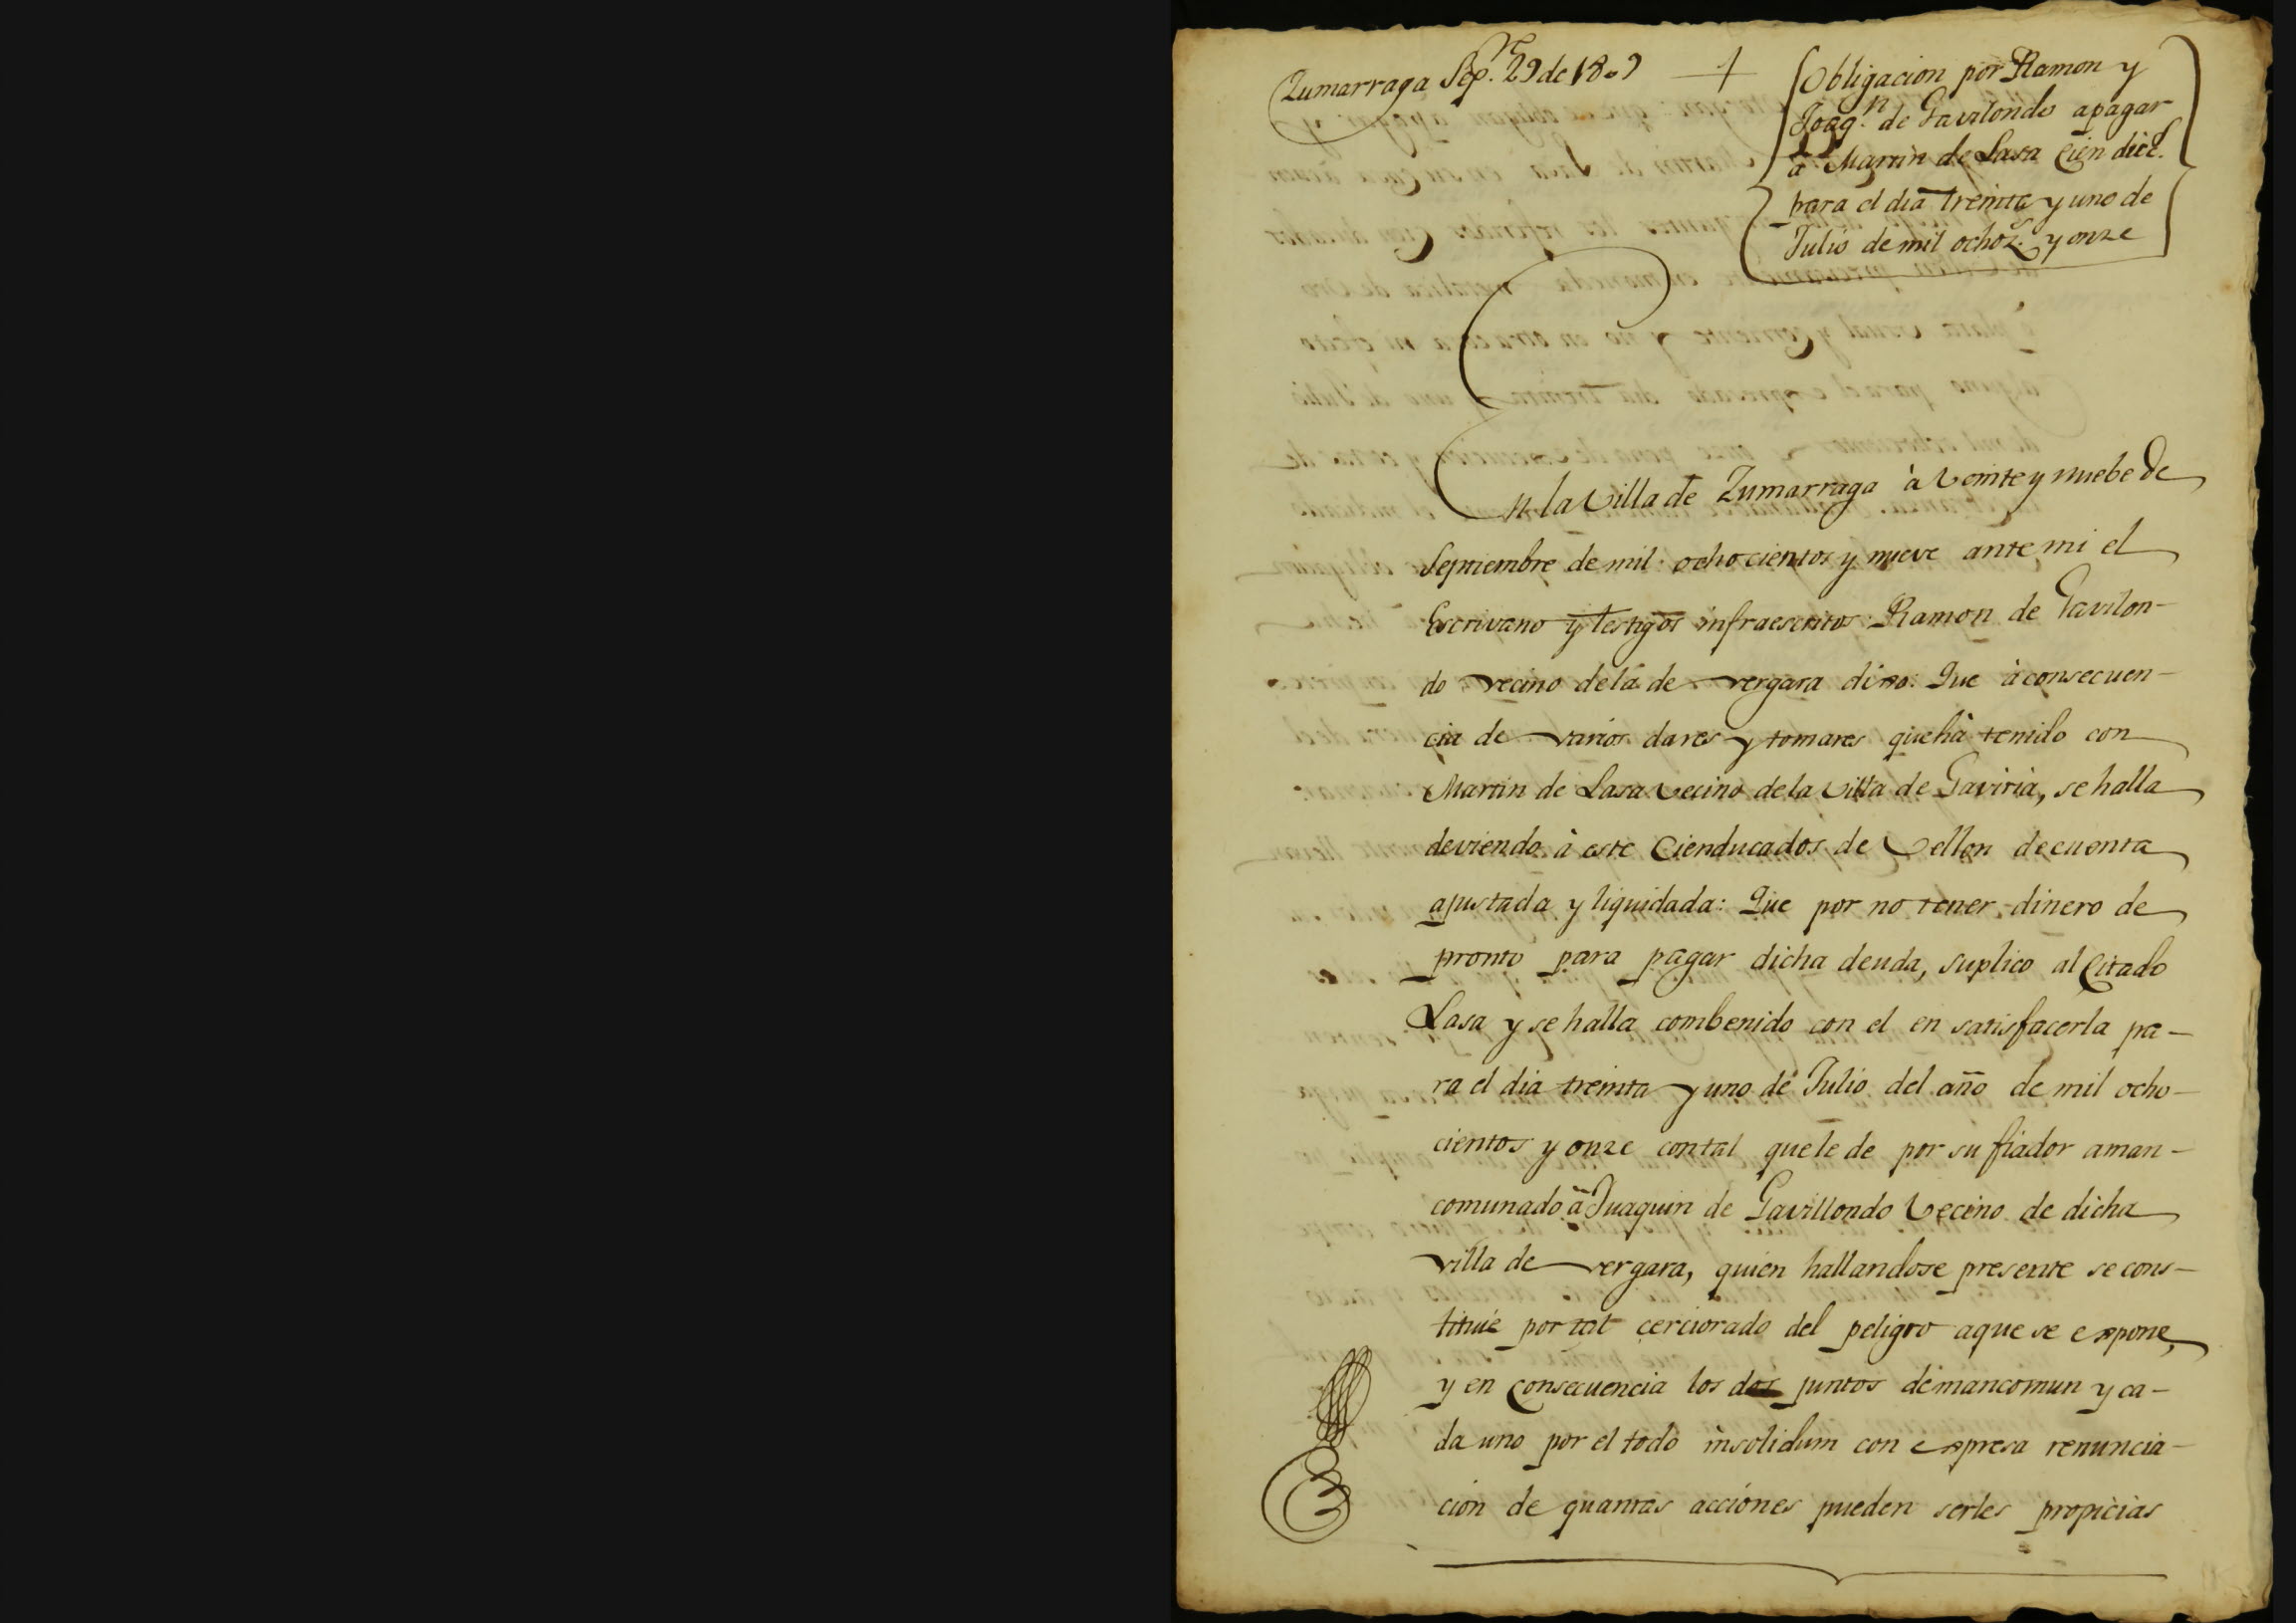 Zumarraga Sep.re 29 de 1809
Obligacion por Ramon y
Joaq.n de Gavilondo apagar
à Martin de Lasa Cien
para el dia treinta y uno de
Julio de mil ochoz.s y onze
En la Villa de Zumarraga à Veinte y nuebe de
Septiembre de mil ochocientos y nueve ante mi el
Escrivano y testigos infraescritos Ramon de Gavilon-
do vecino dela de vergara dixo: Que à consecuen-
cia de varios dares y tomares que hà tenido con
Martin de Lasa Vecino de la Villa de Gaviria, se halla
deviendo à este Cienducados de Vellon de cuenta
ajustada y liquidada: Que por no tener dinero de
pronto para pagar dicha deuda, suplico al Citado
Lasa y se halla combenido con el en satisfacerla pa-
ra el dia treinta y uno de Julio del año de mil ocho-
cientos y onze contal que le de por su fiador aman-
comunado à Juaquin de Gavillondo Vecino de dicha
villa de vergara, quien hallandose presente se cons-
titué por tal cerciorado del peligro aque se expone,
y en Consecuencia los dos juntos de mancomun y ca-
da uno por el todo insolidum con expresa renuncia-
cion de quantas acciónes pueden serles propicias